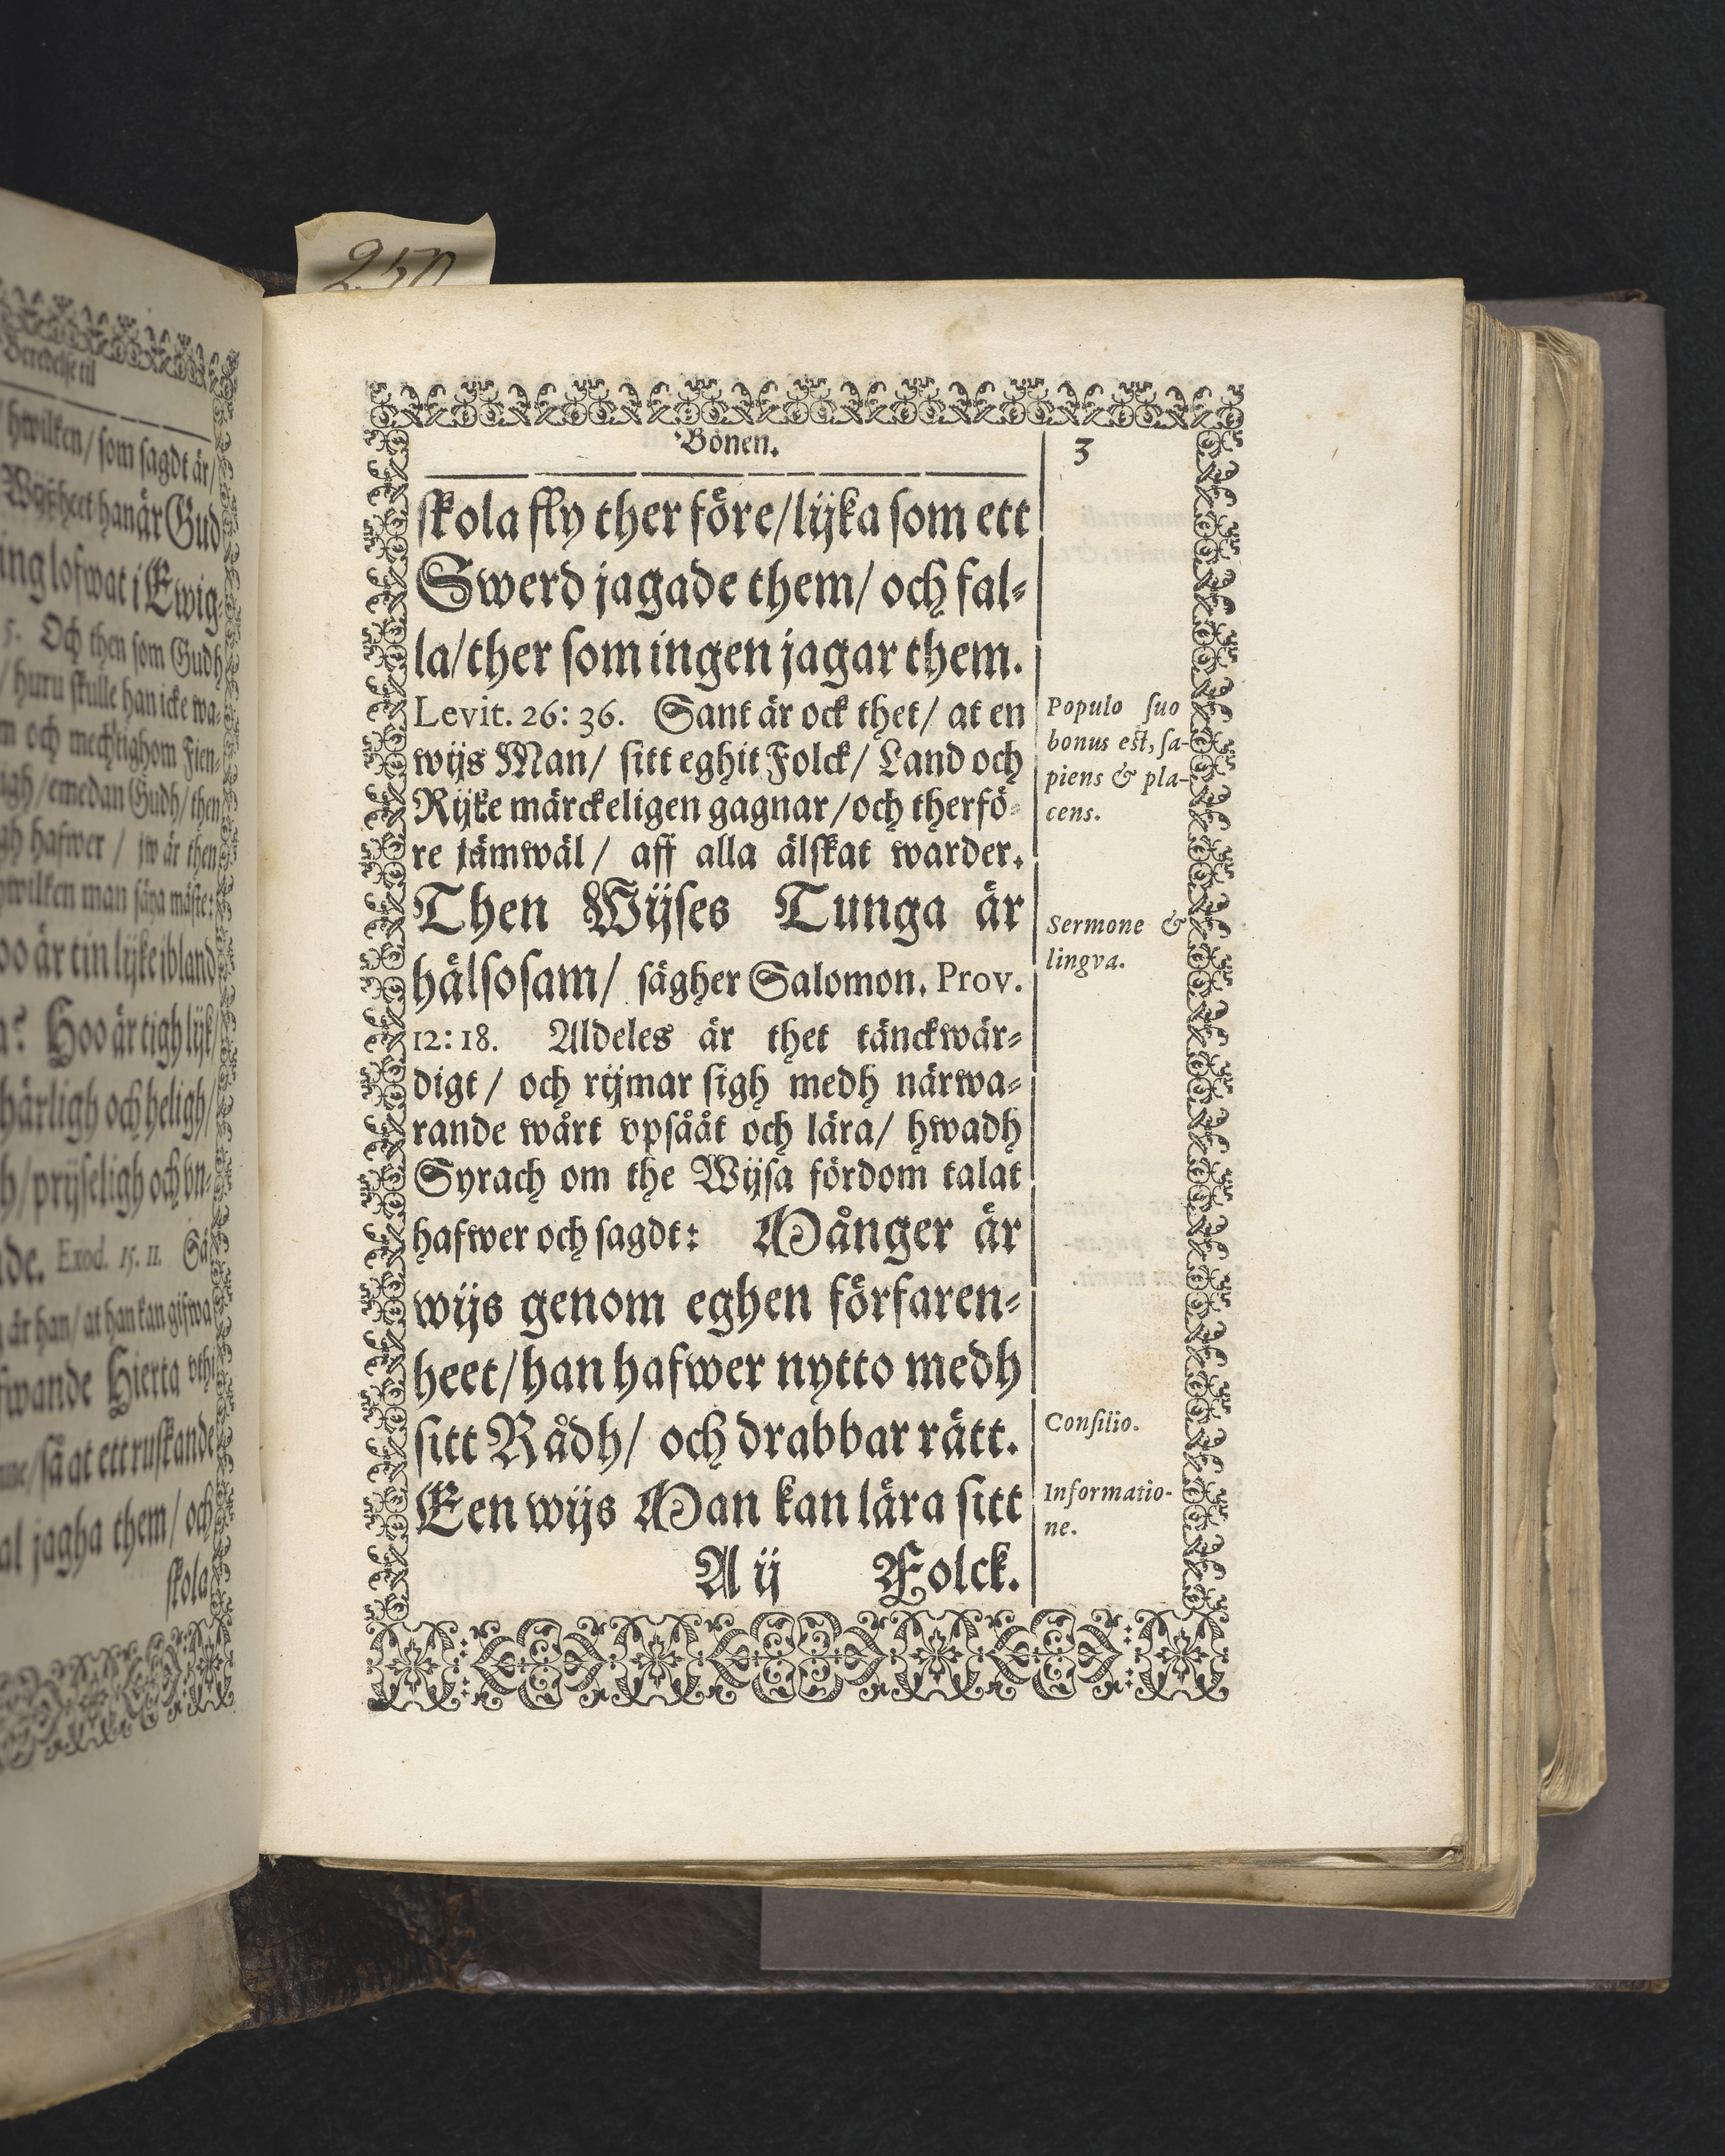 250
Beredelse til
hwilken/ som sagdt är/
Wijßheet han är Gud
ing lofwat i Ewig-
5. Och then som Gudh
/ huru skulle han icke wa-
m och mechtighom Fien-
igh/ emedan Gudh/ then
gh hafwer / jw är then
hwilken man säya måste:
oo är tin lijke ibland
a? Hoo är tigh lijk/
härligh och heligh/
h/ prijseligh och vn-
de. Exod. 15. 11. Så
är han/ at han kan gifwa
fwande Hierta vthi
/ så at ett ruskande
al jagha them/ och
skola
Bönen.
3
skola fly ther före/lijka som ett
Swerd jagade them/ och fal-
la/ther som ingen jagar them.
Levit. 26: 36. Sant är ock thet/ at en
wijs Man/ sitt eghit Folck/ Land och
Rijke märckeligen gagnar/och therfö-
re jämwäl/ aff alla älskat warder.
Then Wijses Tunga är
hälsosam/ sägher Salomon. Prov.
12: 18. Aldeles är thet tänckwär-
digt/ och rijmar sigh medh närwa-
rande wårt vpsåät och lära/ hwadh
Syrach om the Wijsa fördom talat
hafwer och sagdt: Månger är
wijs genom eghen förfaren-
heet/han hafwer nytto medh
sitt Rådh/ och drabbar rätt.
Een wijs Man kan lära sitt
A ij Folck.
Populo suo
bonus est, sa-
piens & pla-
cens.
Sermone &
lingva.
Consilio.
Informatio-
ne.